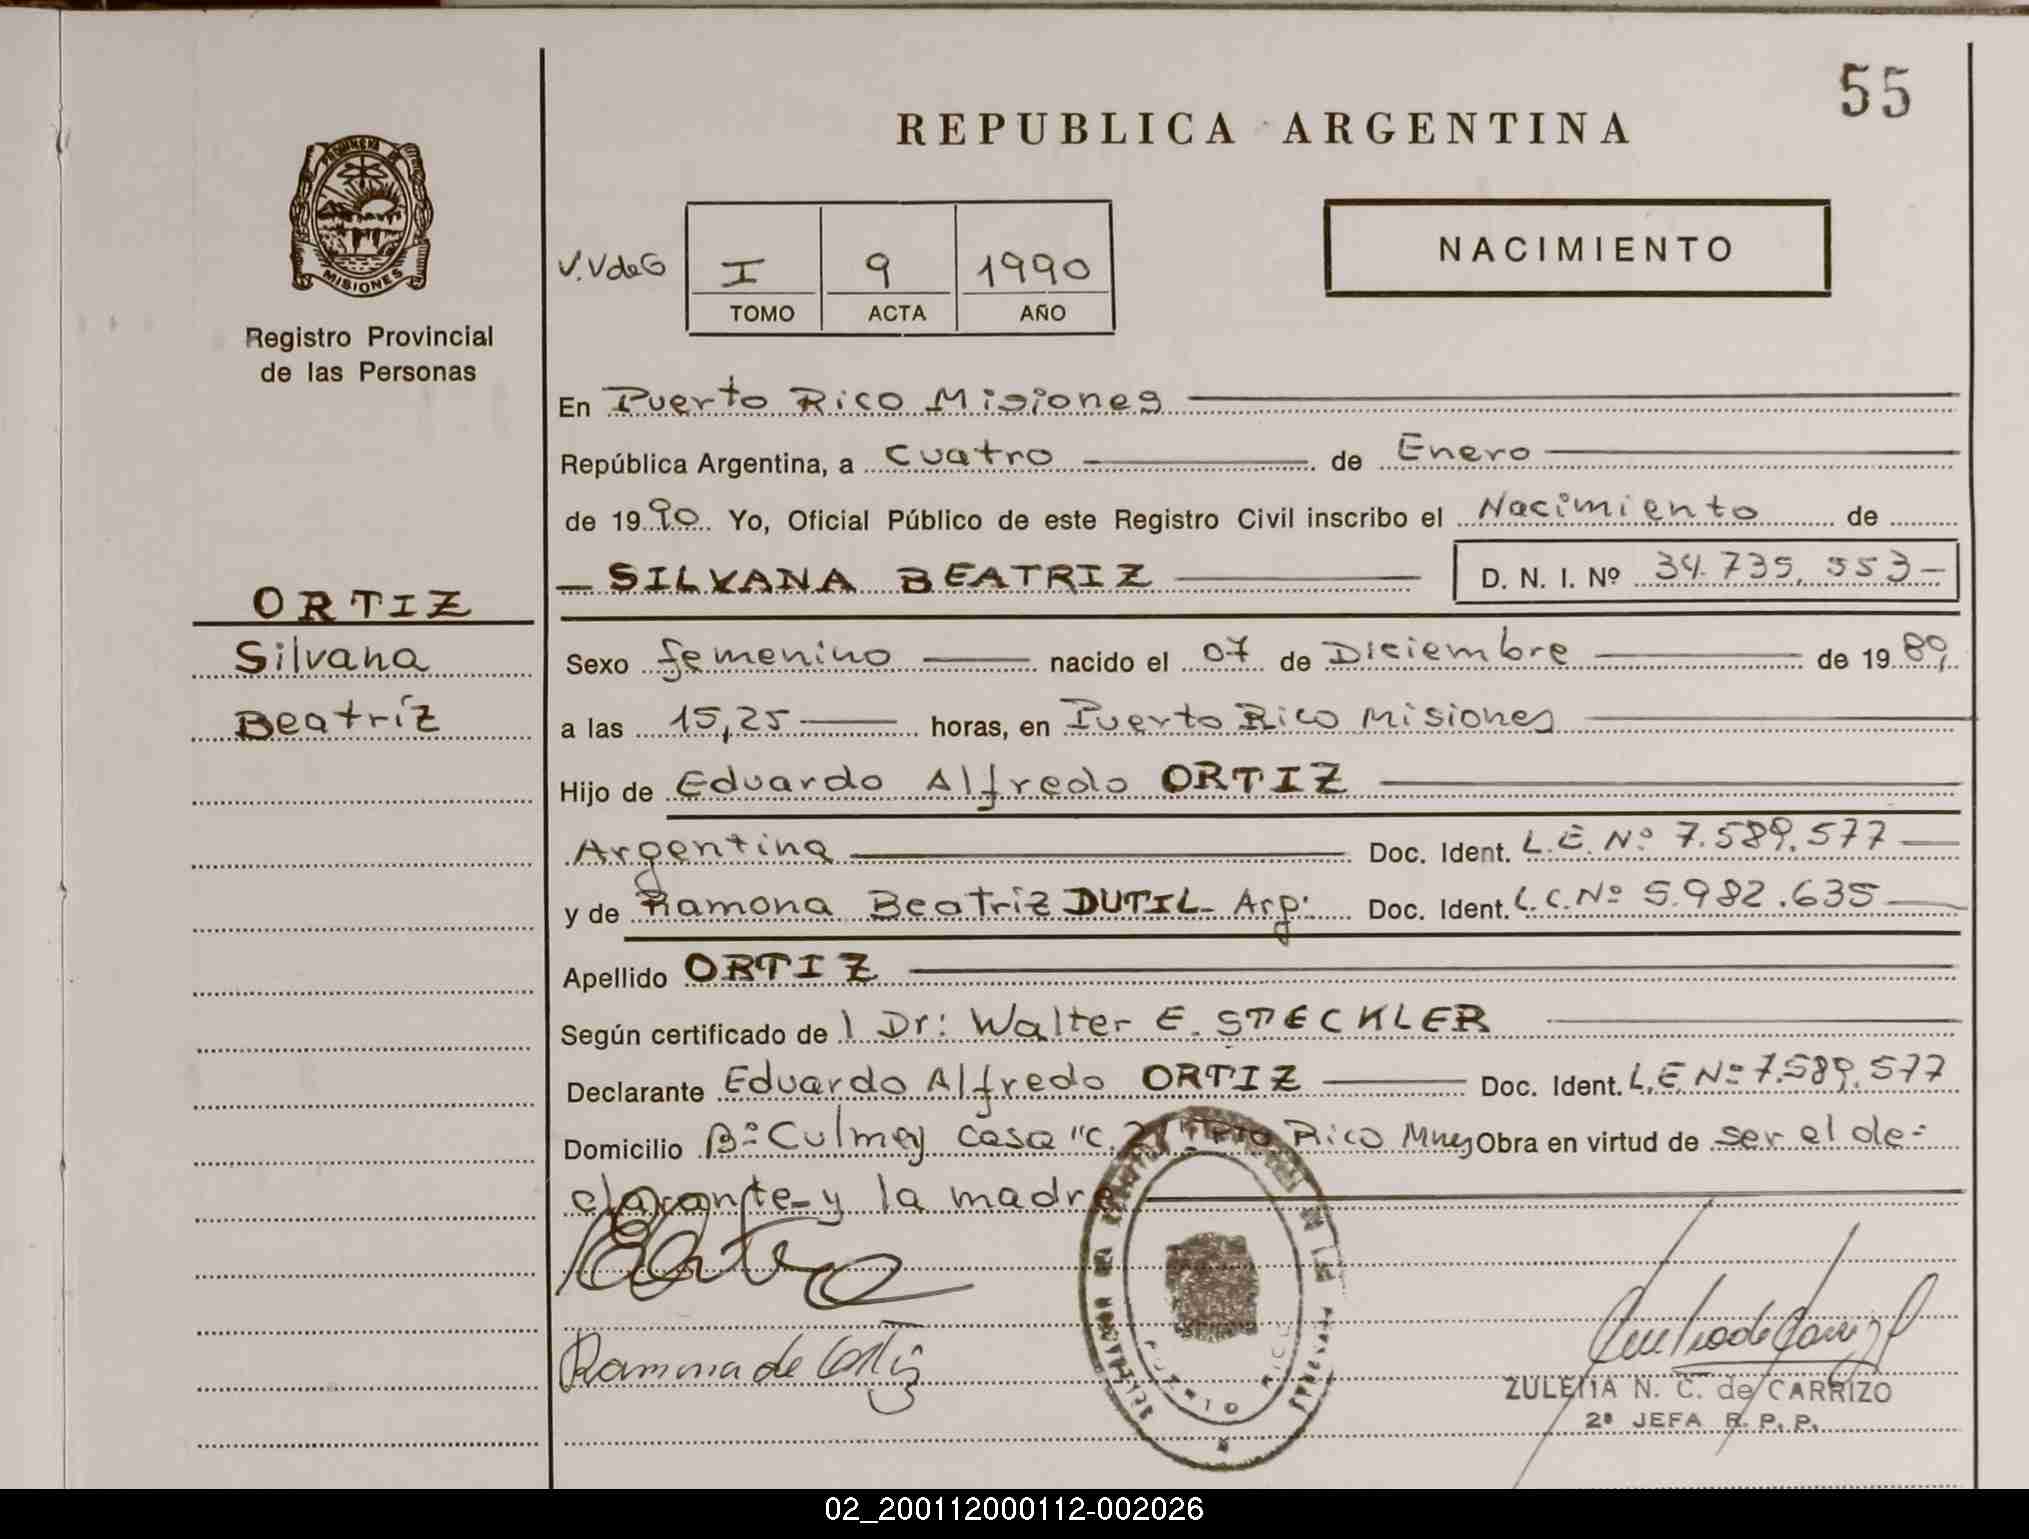 55
REPUBLICA ARGENTINA
PROVINCIA DE
MISIONES
Registro Provincial
de las Personas
V.VdeG
I 9 1990
TOMO ACTA AÑO
NACIMIENTO
En Puerto Rico Misiones
República Argentina, a cuatro de Enero
de 1990 Yo, Oficial Público de este Registro Civil inscribo el Nacimiento de
SILVANA BEATRIZ D. N. I. Nº 34.735.553-
ORTIZ
Silvana
Beatríz
Sexo femenino nacido el 07 de Diciembre de 1989
a las 15,25 horas, en Puerto Rico Misiones
Hijo de Eduardo Alfredo ORTIZ
Argentina Doc. Ident. L.E. Nº 7.589.577
y de Ramona Beatriz DUTIL- Arg: Doc. Ident. L.C. Nº 5.982.635
Apellido ORTIZ
Según certificado de l Dr: Walter E. STECKLER
Declarante Eduardo Alfredo ORTIZ Doc. Ident. L.E. Nº 7.589.577
Domicilio Bº Culmey casa "C. 2" Pto Rico Mnes Obra en virtud de ser el de-
clarante- y la madre
Ramona de Ortiz
PUERTO RICO
ZULEMA N. C. de CARRIZO
2ª JEFA R. P. P.
02_200112000112-002026